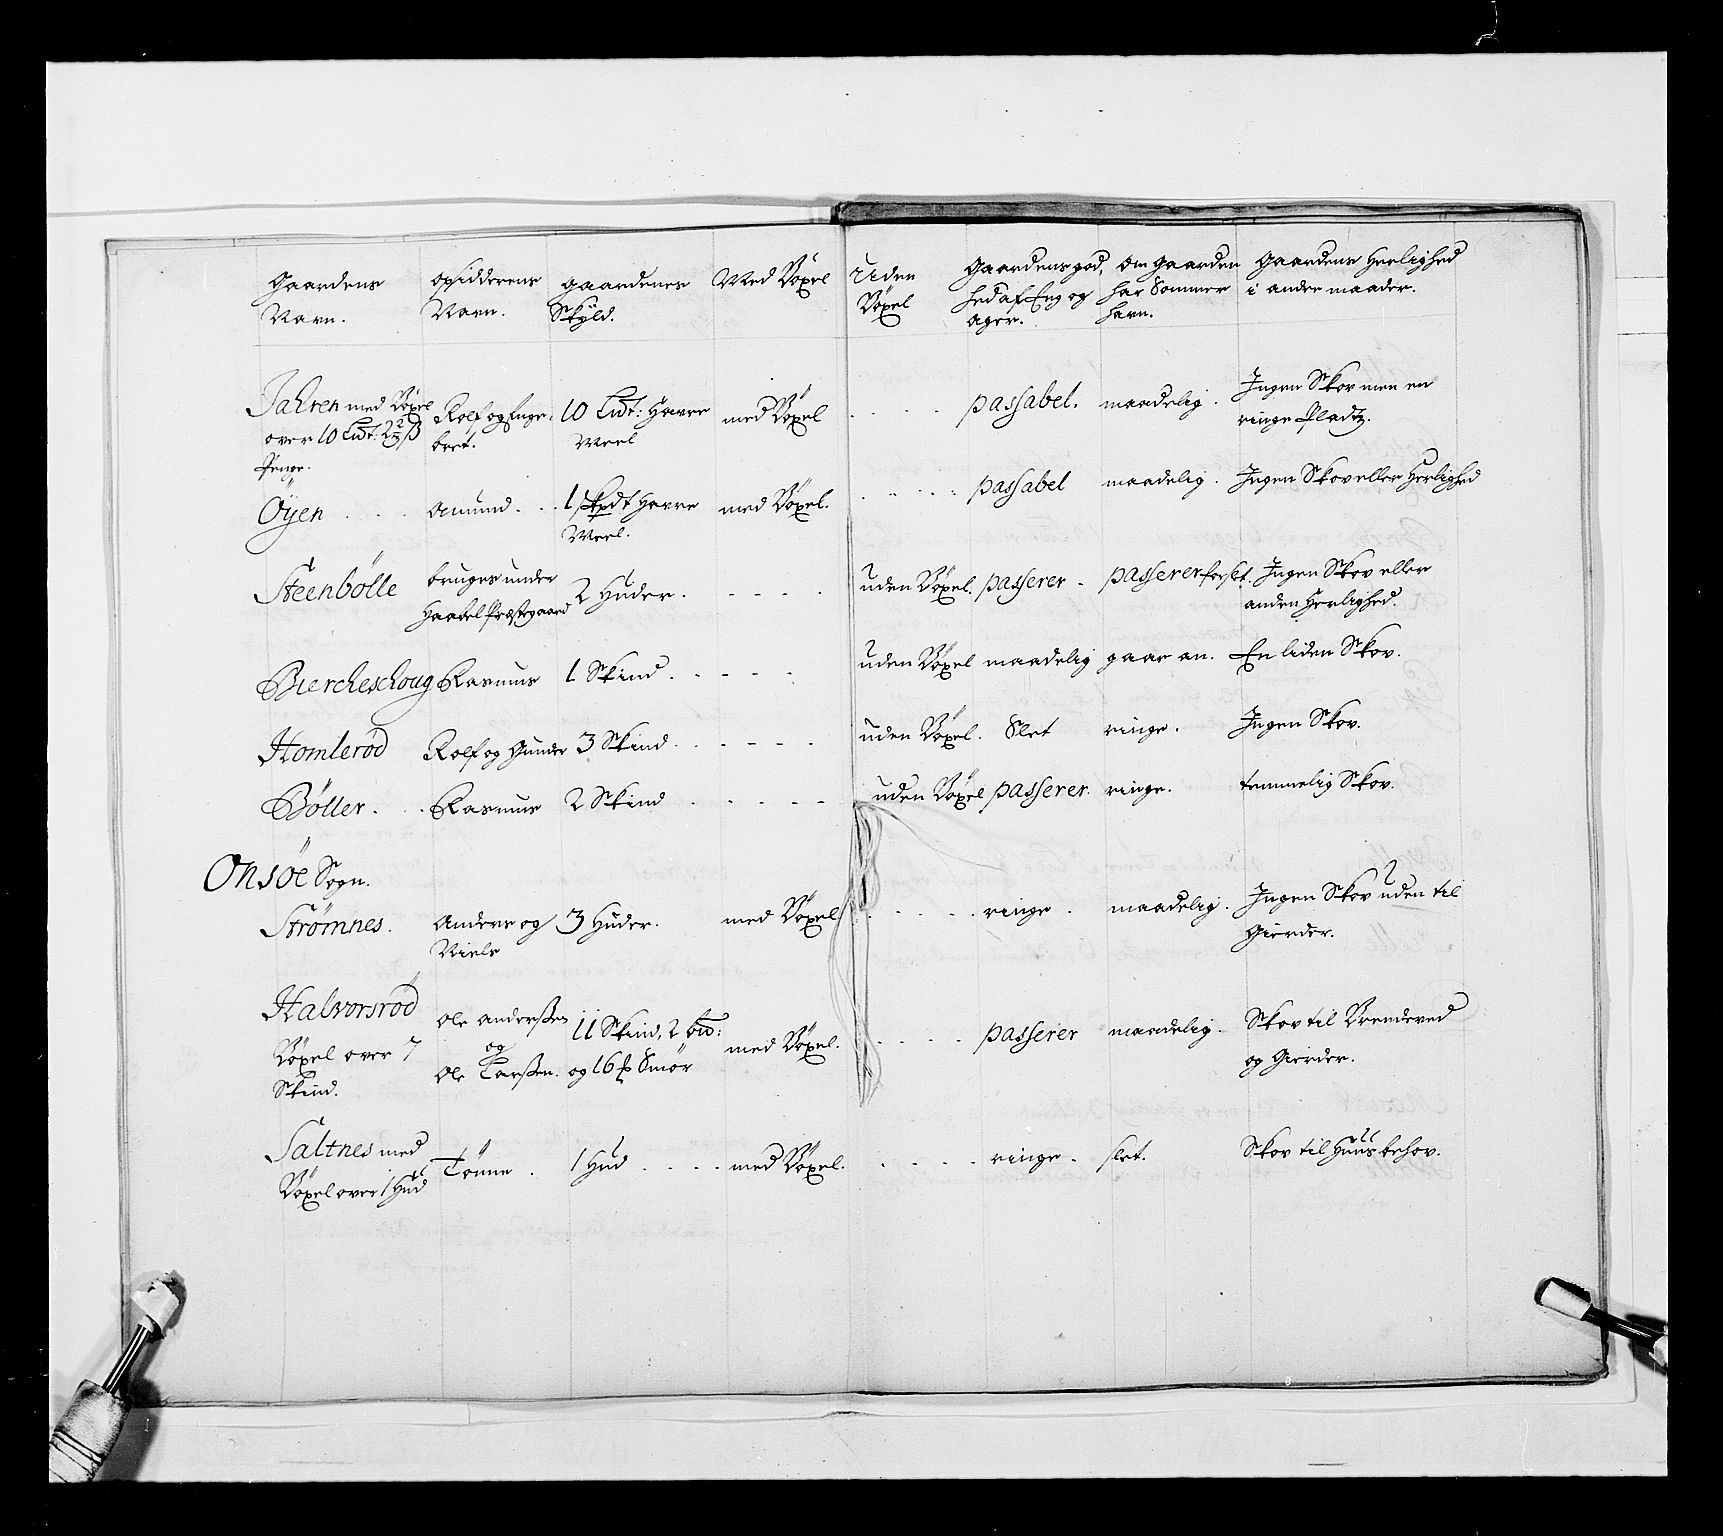 Gaardens Navn. | Opsidderens Navn. | Gaardenes Skÿld. | Med Böxel | Uden Böxel | Gaardens god, hed af Eng og Ager. | Om Gaarden har Sommer havn. | Gaardens Herlighed i andre maader.
Jahren med Böxel over 10 Lidt: 2 2/3 ß Penge. | Rolf og Enge, bret. | 10 Lidt: Havre Meel | med Böxel | passabel. | maadelig. | Ingen Skov men en ringe Pladtz.
Öyen | Amund. | 1 skpdt Havre Meel. | med Böxel. | passabel | maadelig. | Ingen Skov eller Herlighed
Steenbölle | bruges under Haabel Præstegaard | 2 Huder. | uden Böxel. | passerer | passerer for slet. | Ingen Skov eller anden Herlighed.
Biercheschoug | Rasmus | 1 Skind. | uden Böxel | maadelig | gaar an. | En liden Skov.
Homleröd | Rolf og Gunder | 3 Skind. | uden Böxel. | Slet | ringe. | Ingen Skov.
Böller. | Rasmus | 2 Skind | uden Böxel | passerer. | ringe. | temmelig Skov.
Onsöe Sogn.
Strömnes. | Anders og Niels | 3 Huder. | med Böxel | ringe. | maadelig. | Ingen Skov uden til Gierder.
Halvorsröd Böxel over 7 Skind. | Ole Anderßen og Ole Larßen. | 11 Skind, 2 og 16 Smör | med Böxel. | passerer | maadelig. | Skov til Brendeved og Gierder.
Saltnes med Böxel over 1 Hud | Tönne. | 1 Hud | med Böxel. | ringe. | slet. | Skov til Huus behov.